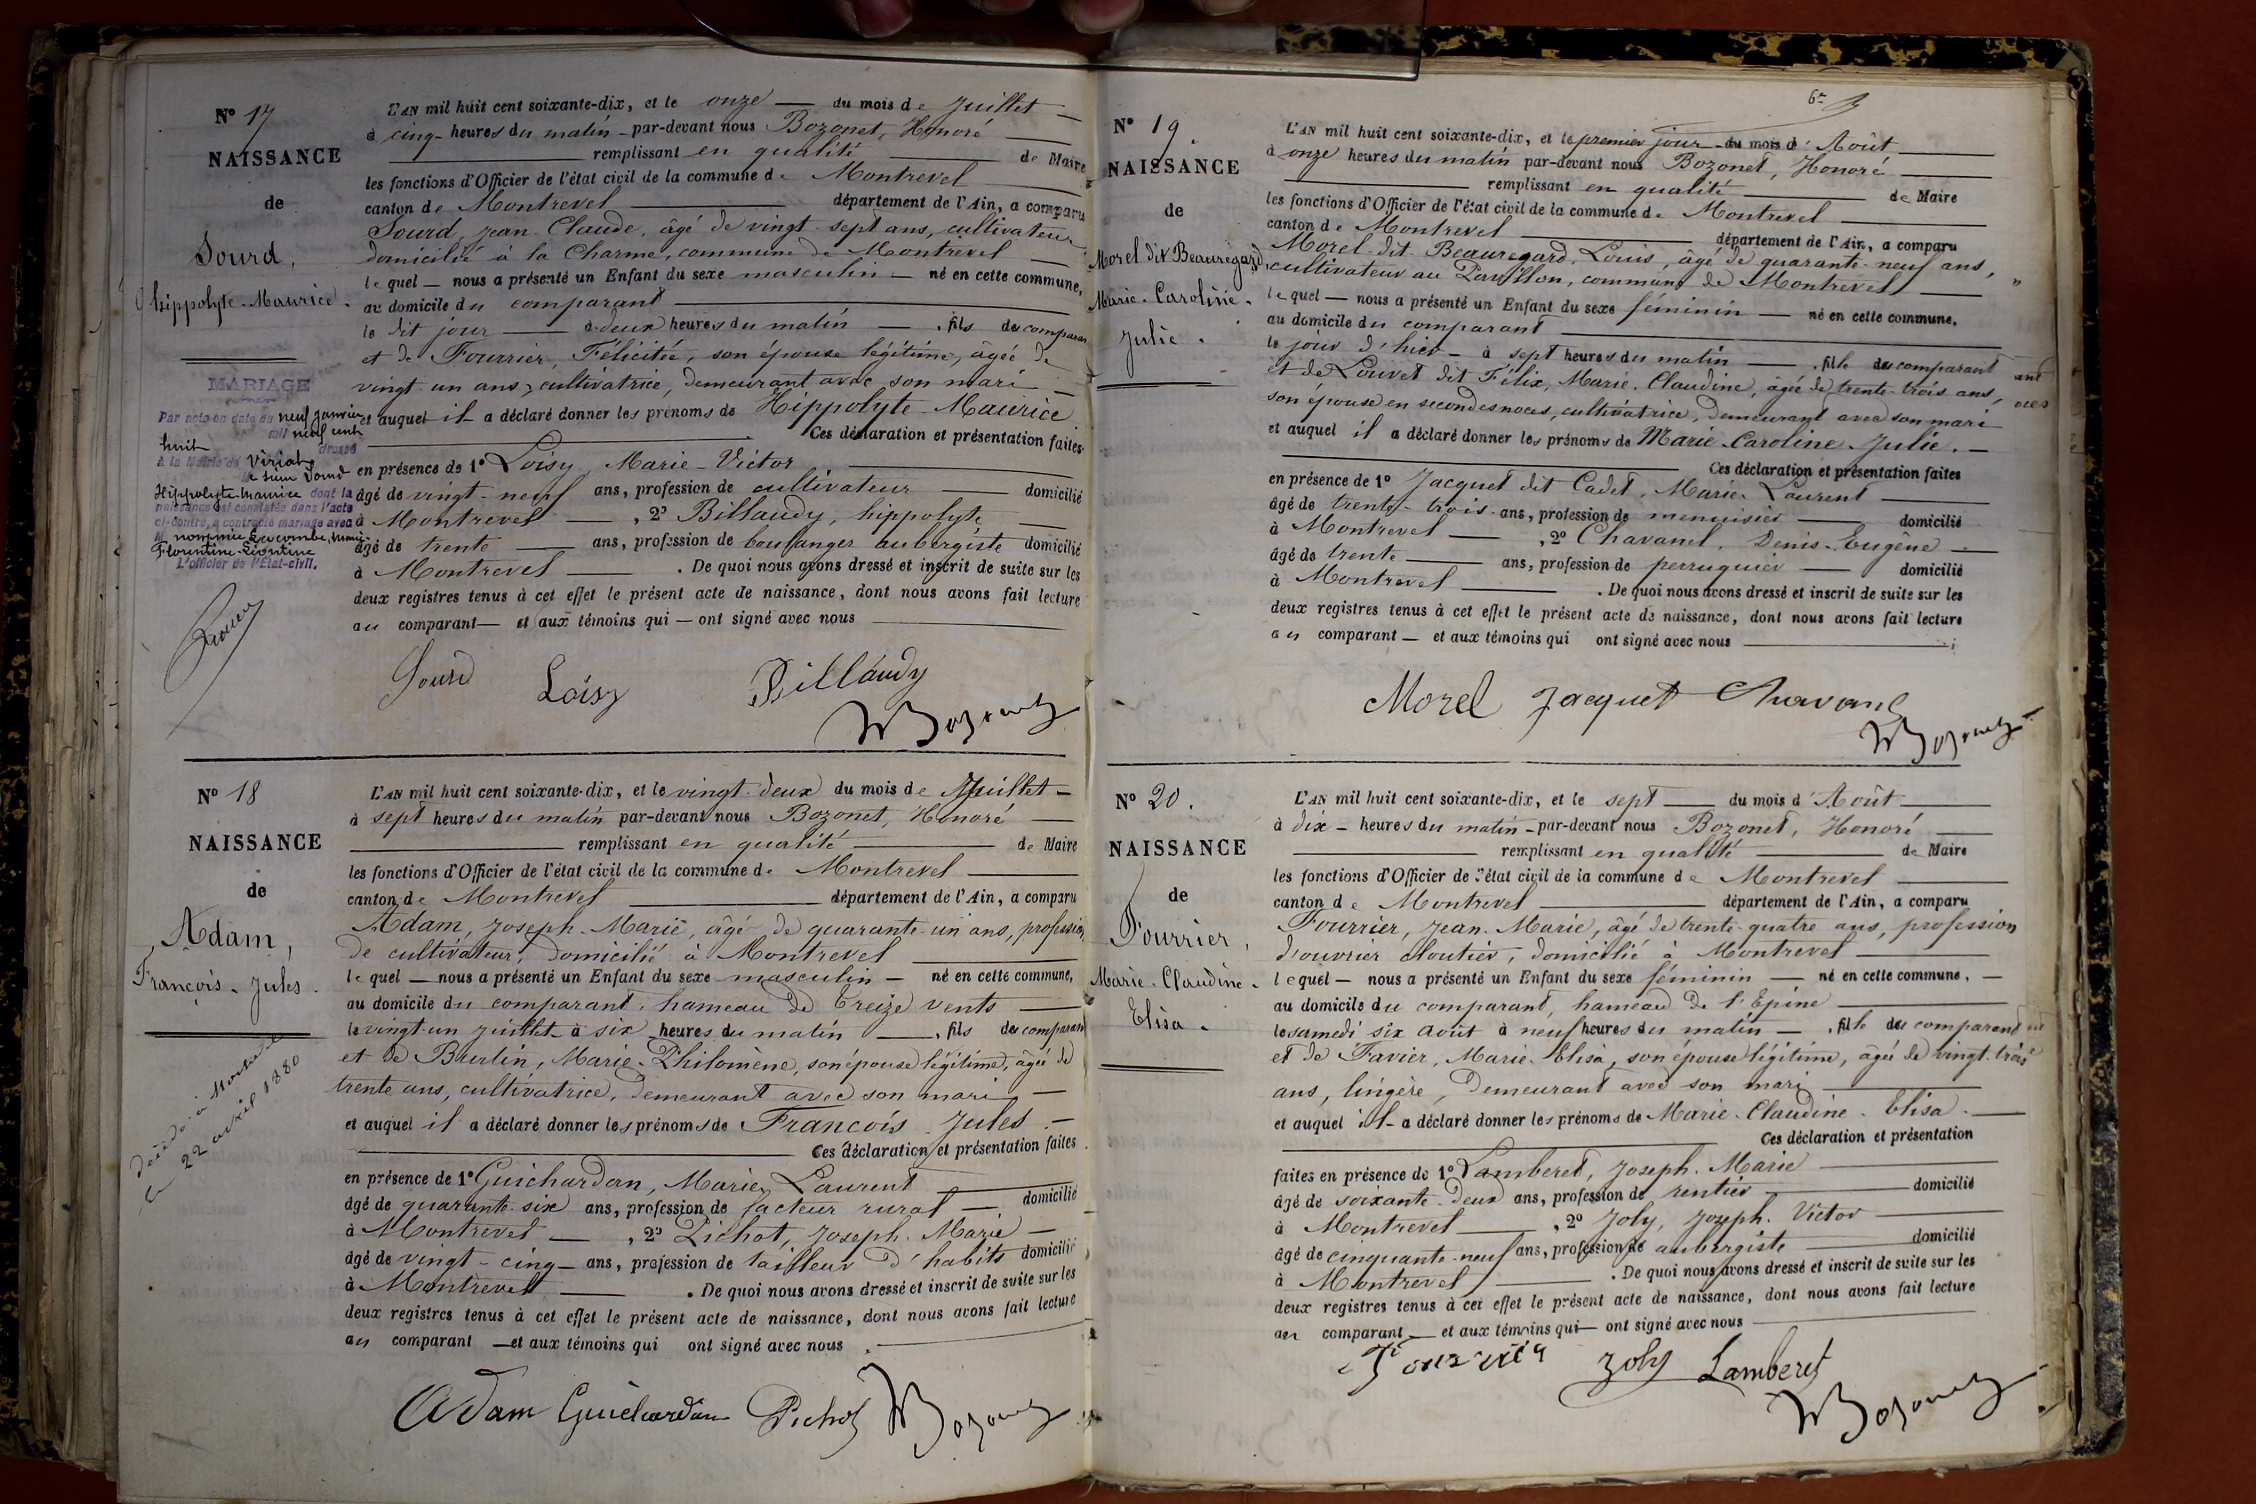 N° 17
NAISSANCE
de
Sourd,
hippolyte-Maurice.
MARIAGE
Par acte en date du neuf janvier
mil neuf cent
huit dressé
à la Mairie de Viriat
le sieur Sourd
Hippolyte-Maurice dont la
naissance est constatée dans l'acte
ci-contre, a contracté mariage avec
Florentine-Léontine
L'officier de l'Etat-civil.
L'AN mil huit cent soixante-dix, et le onze du mois de Juillet
à cinq heures du matin par-devant nous Bozonet, Honoré
remplissant en qualité de Maire
les fonctions d'Officier de l'état civil de la commune de Montrevel
canton de Montrevel département de l'Ain, a comparu
Sourd, Jean-Claude, âgé de vingt-sept ans, cultivateur
domicilié à la Charme, commune de Montrevel
lequel nous a présenté un Enfant du sexe masculin né en cette commune,
au domicile du comparant
le dit jour à deux heures du matin, fils du comparant
et de Fourrier, Félicitée, son épouse légitime, âgée de
vingt-un ans, cultivatrice, demeurant avec son mari
et auquel il a déclaré donner les prénoms de Hippolyte-Maurice
Ces déclaration et présentation faites
en présence de 1° Loisy, Marie-Victor
âgé de vingt-neuf ans, profession de cultivateur domicilié
à Montrevel, 2° Billaudy, hippolyte
âgé de trente ans, profession de boulanger aubergiste domicilié
à Montrevel. De quoi nous avons dressé et inscrit de suite sur les
deux registres tenus à cet effet le présent acte de naissance, dont nous avons fait lecture
au comparant et aux témoins qui ont signé avec nous
Sourd Loisy Billaudy
Bozonet
N° 18
NAISSANCE
de
Adam,
François-Jules.
Décédé à
le 22 avril 1880
L'AN mil huit cent soixante-dix, et le vingt-deux du mois de Juillet
à sept heures du matin par-devant nous Bozonet, Honoré
remplissant en qualité de Maire
les fonctions d'Officier de l'état civil de la commune de Montrevel
canton de Montrevel département de l'Ain, a comparu
Adam, Joseph-Marie, âgé de quarante-un ans, profession
de cultivateur, domicilié à Montrevel
lequel nous a présenté un Enfant du sexe masculin né en cette commune,
au domicile du comparant, hameau de Treize vents
le vingt-un juillet à six heures du matin, fils du comparant
et de Brulin, Marie-Philomène, son épouse légitime, âgée de
trente ans, cultivatrice, demeurant avec son mari
et auquel il a déclaré donner les prénoms de François-Jules
Ces déclaration et présentation faites
en présence de 1° Guichardan, Marie-Laurent
âgé de quarante-six ans, profession de facteur rural domicilié
à Montrevel, 2° Pichot, Joseph-Marie
âgé de vingt-cinq ans, profession de tailleur d'habits domicilié
à Montrevel. De quoi nous avons dressé et inscrit de suite sur les
deux registres tenus à cet effet le présent acte de naissance, dont nous avons fait lecture
au comparant et aux témoins qui ont signé avec nous.
Adam Guichardan Pichot Bozonet
N° 19
NAISSANCE
de
Morel dit Beauregard,
Marie-Caroline-
Julie.
L'AN mil huit cent soixante-dix, et le premier jour du mois d'Août
à onze heures du matin par-devant nous Bozonet, Honoré
remplissant en qualité de Maire
les fonctions d'Officier de l'état civil de la commune de Montrevel
canton de Montrevel département de l'Ain, a comparu
Morel dit Beauregard, Louis, âgé de quarante-neuf ans,
cultivateur au Pavillon, commune de Montrevel
lequel nous a présenté un Enfant du sexe féminin né en cette commune,
au domicile du comparant
le jour d'hier à sept heures du matin, fille du comparant
et de Louvet dit Félix, Marie-Claudine, âgée de trente-trois ans,
son épouse en secondes noces, cultivatrice, demeurant avec son mari
et auquel il a déclaré donner les prénoms de Marie-Caroline-Julie.
Ces déclaration et présentation faites
en présence de 1° Jacquet dit Cadet, Marie-Laurent
âgé de trente-trois ans, profession de menuisier domicilié
à Montrevel, 2° Chavanel, Denis-Eugène
âgé de trente ans, profession de perruquier domicilié
à Montrevel. De quoi nous avons dressé et inscrit de suite sur les
deux registres tenus à cet effet le présent acte de naissance, dont nous avons fait lecture
au comparant et aux témoins qui ont signé avec nous
Morel Jacquet Chavanel
Bozonet
N° 20.
NAISSANCE
de
Fourrier,
Marie-Claudine-
Elisa.
L'AN mil huit cent soixante-dix, et le sept du mois d'Août
à dix heures du matin par-devant nous Bozonet, Honoré
remplissant en qualité de Maire
les fonctions d'Officier de l'état civil de la commune de Montrevel
canton de Montrevel département de l'Ain, a comparu
Fourrier, Jean-Marie, âgé de trente-quatre ans, profession
d'ouvrier cloutier, domicilié à Montrevel
lequel nous a présenté un Enfant du sexe féminin né en cette commune,
au domicile du comparant, hameau de l'Epine
le samedi six août à neuf heures du matin, fille du comparant
et de Favier, Marie-Elisa, son épouse légitime, âgée de vingt-trois
ans, lingère, demeurant avec son mari
et auquel il a déclaré donner les prénoms de Marie-Claudine-Elisa.
Ces déclaration et présentation
faites en présence de 1° Lamberet, Joseph-Marie
âgé de soixante-deux ans, profession de rentier domicilié
à Montrevel, 2° Joly, Joseph-Victor
âgé de cinquante-neuf ans, profession de aubergiste domicilié
à Montrevel. De quoi nous avons dressé et inscrit de suite sur les
deux registres tenus à cet effet le présent acte de naissance, dont nous avons fait lecture
au comparant et aux témoins qui ont signé avec nous
Fourrier Joly Lamberet
Bozonet